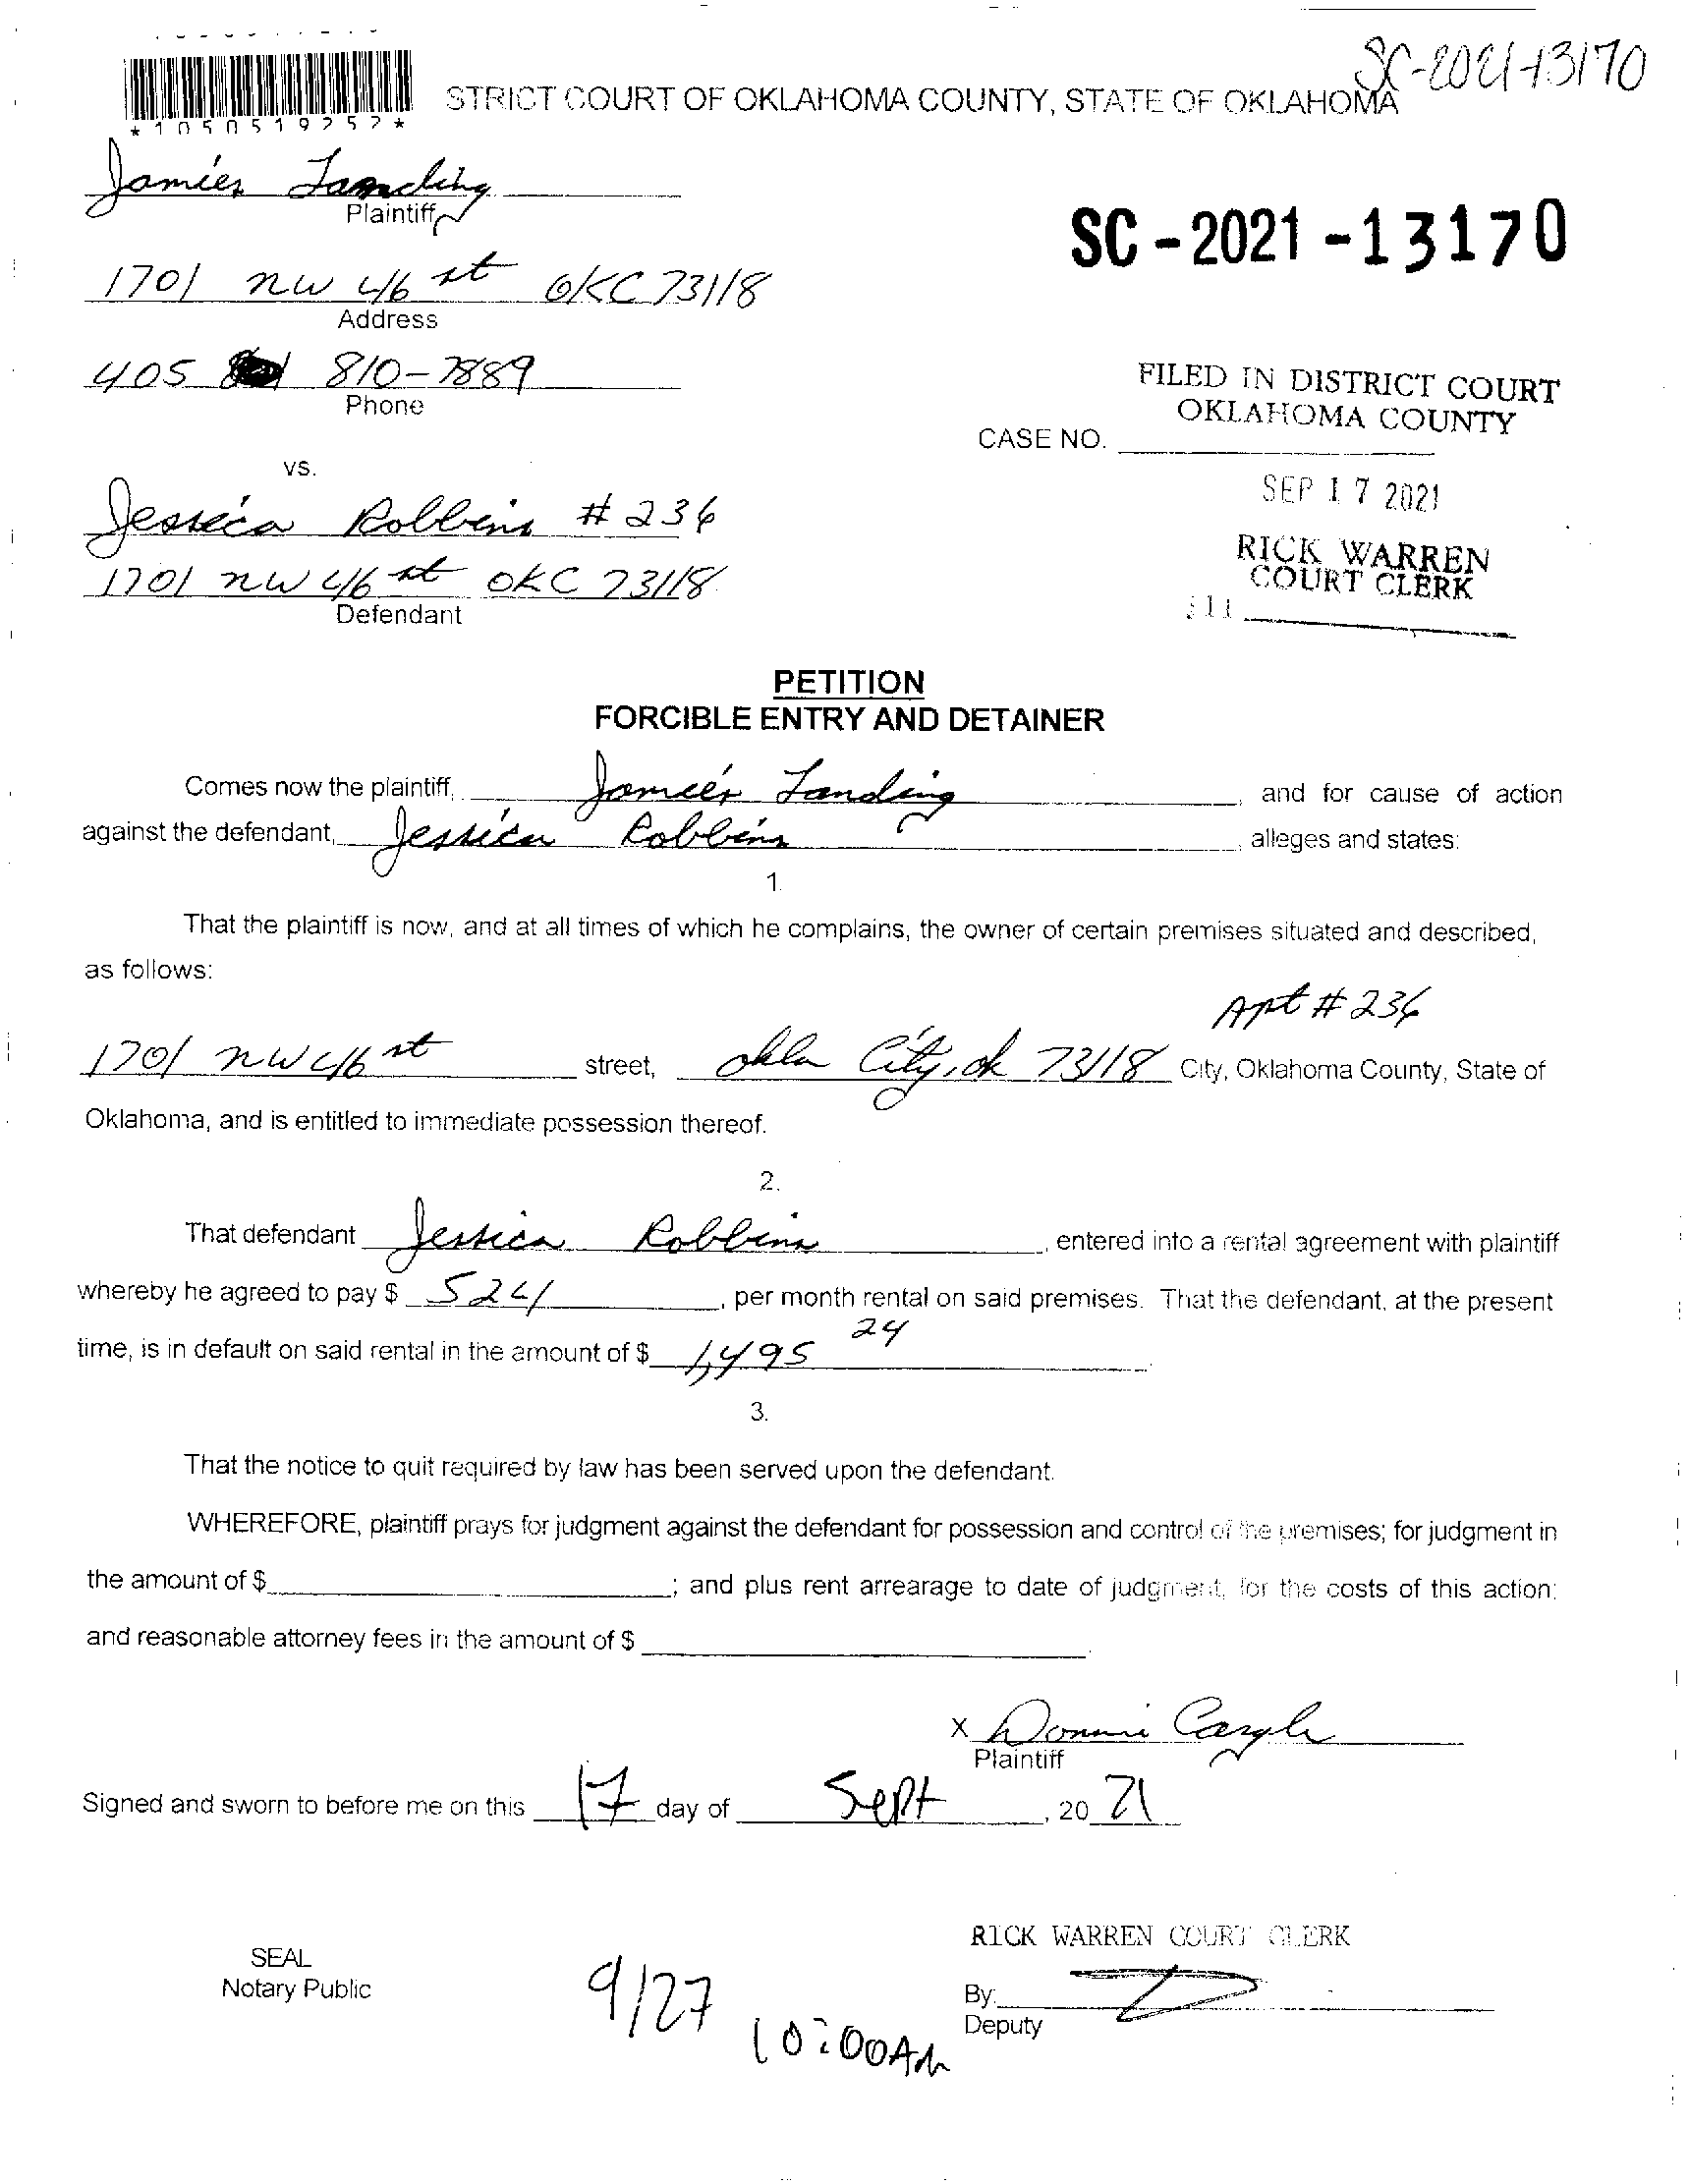 SC-2021-13170
*1050519257*
STRICT COURT OF OKLAHOMA COUNTY, STATE OF OKLAHOMA
Jamies Landing
Plaintiff
SC-2021-13170
1701 NW 46 st OKC 73118
Address
405 810-7889
Phone
FILED IN DISTRICT COURT
OKLAHOMA COUNTY
CASE NO.
vs.
SEP 17 2021
Jessica Robbins # 236
RICK WARREN
COURT CLERK
1701 NW 46 st OKC 73118
Defendant
PETITION
FORCIBLE ENTRY AND DETAINER
Comes now the plaintiff, Jamies Landing and for cause of action
against the defendant, Jessica Robbins, alleges and states:
1.
That the plaintiff is now, and at all times of which he complains, the owner of certain premises situated and described,
as follows:
Apt # 236
1701 NW 46 st street, Okla City, ok 73118 City, Oklahoma County, State of
Oklahoma, and is entitled to immediate possession thereof.
2.
That defendant Jessica Robbins, entered into a rental agreement with plaintiff
whereby he agreed to pay $ 524, per month rental on said premises. That the defendant, at the present
time, is in default on said rental in the amount of $ 1,495 24.
3.
That the notice to quit required by law has been served upon the defendant.
WHEREFORE, plaintiff prays for judgment against the defendant for possession and control of the premises; for judgment in
the amount of $ ; and plus rent arrearage to date of judgment, for the costs of this action;
and reasonable attorney fees in the amount of $ .
X Donnie Cargle
Plaintiff
Signed and sworn to before me on this 17 day of Sept, 20 21
RICK WARREN COURT CLERK
SEAL
Notary Public
9/27 10:00AM
By:
Deputy